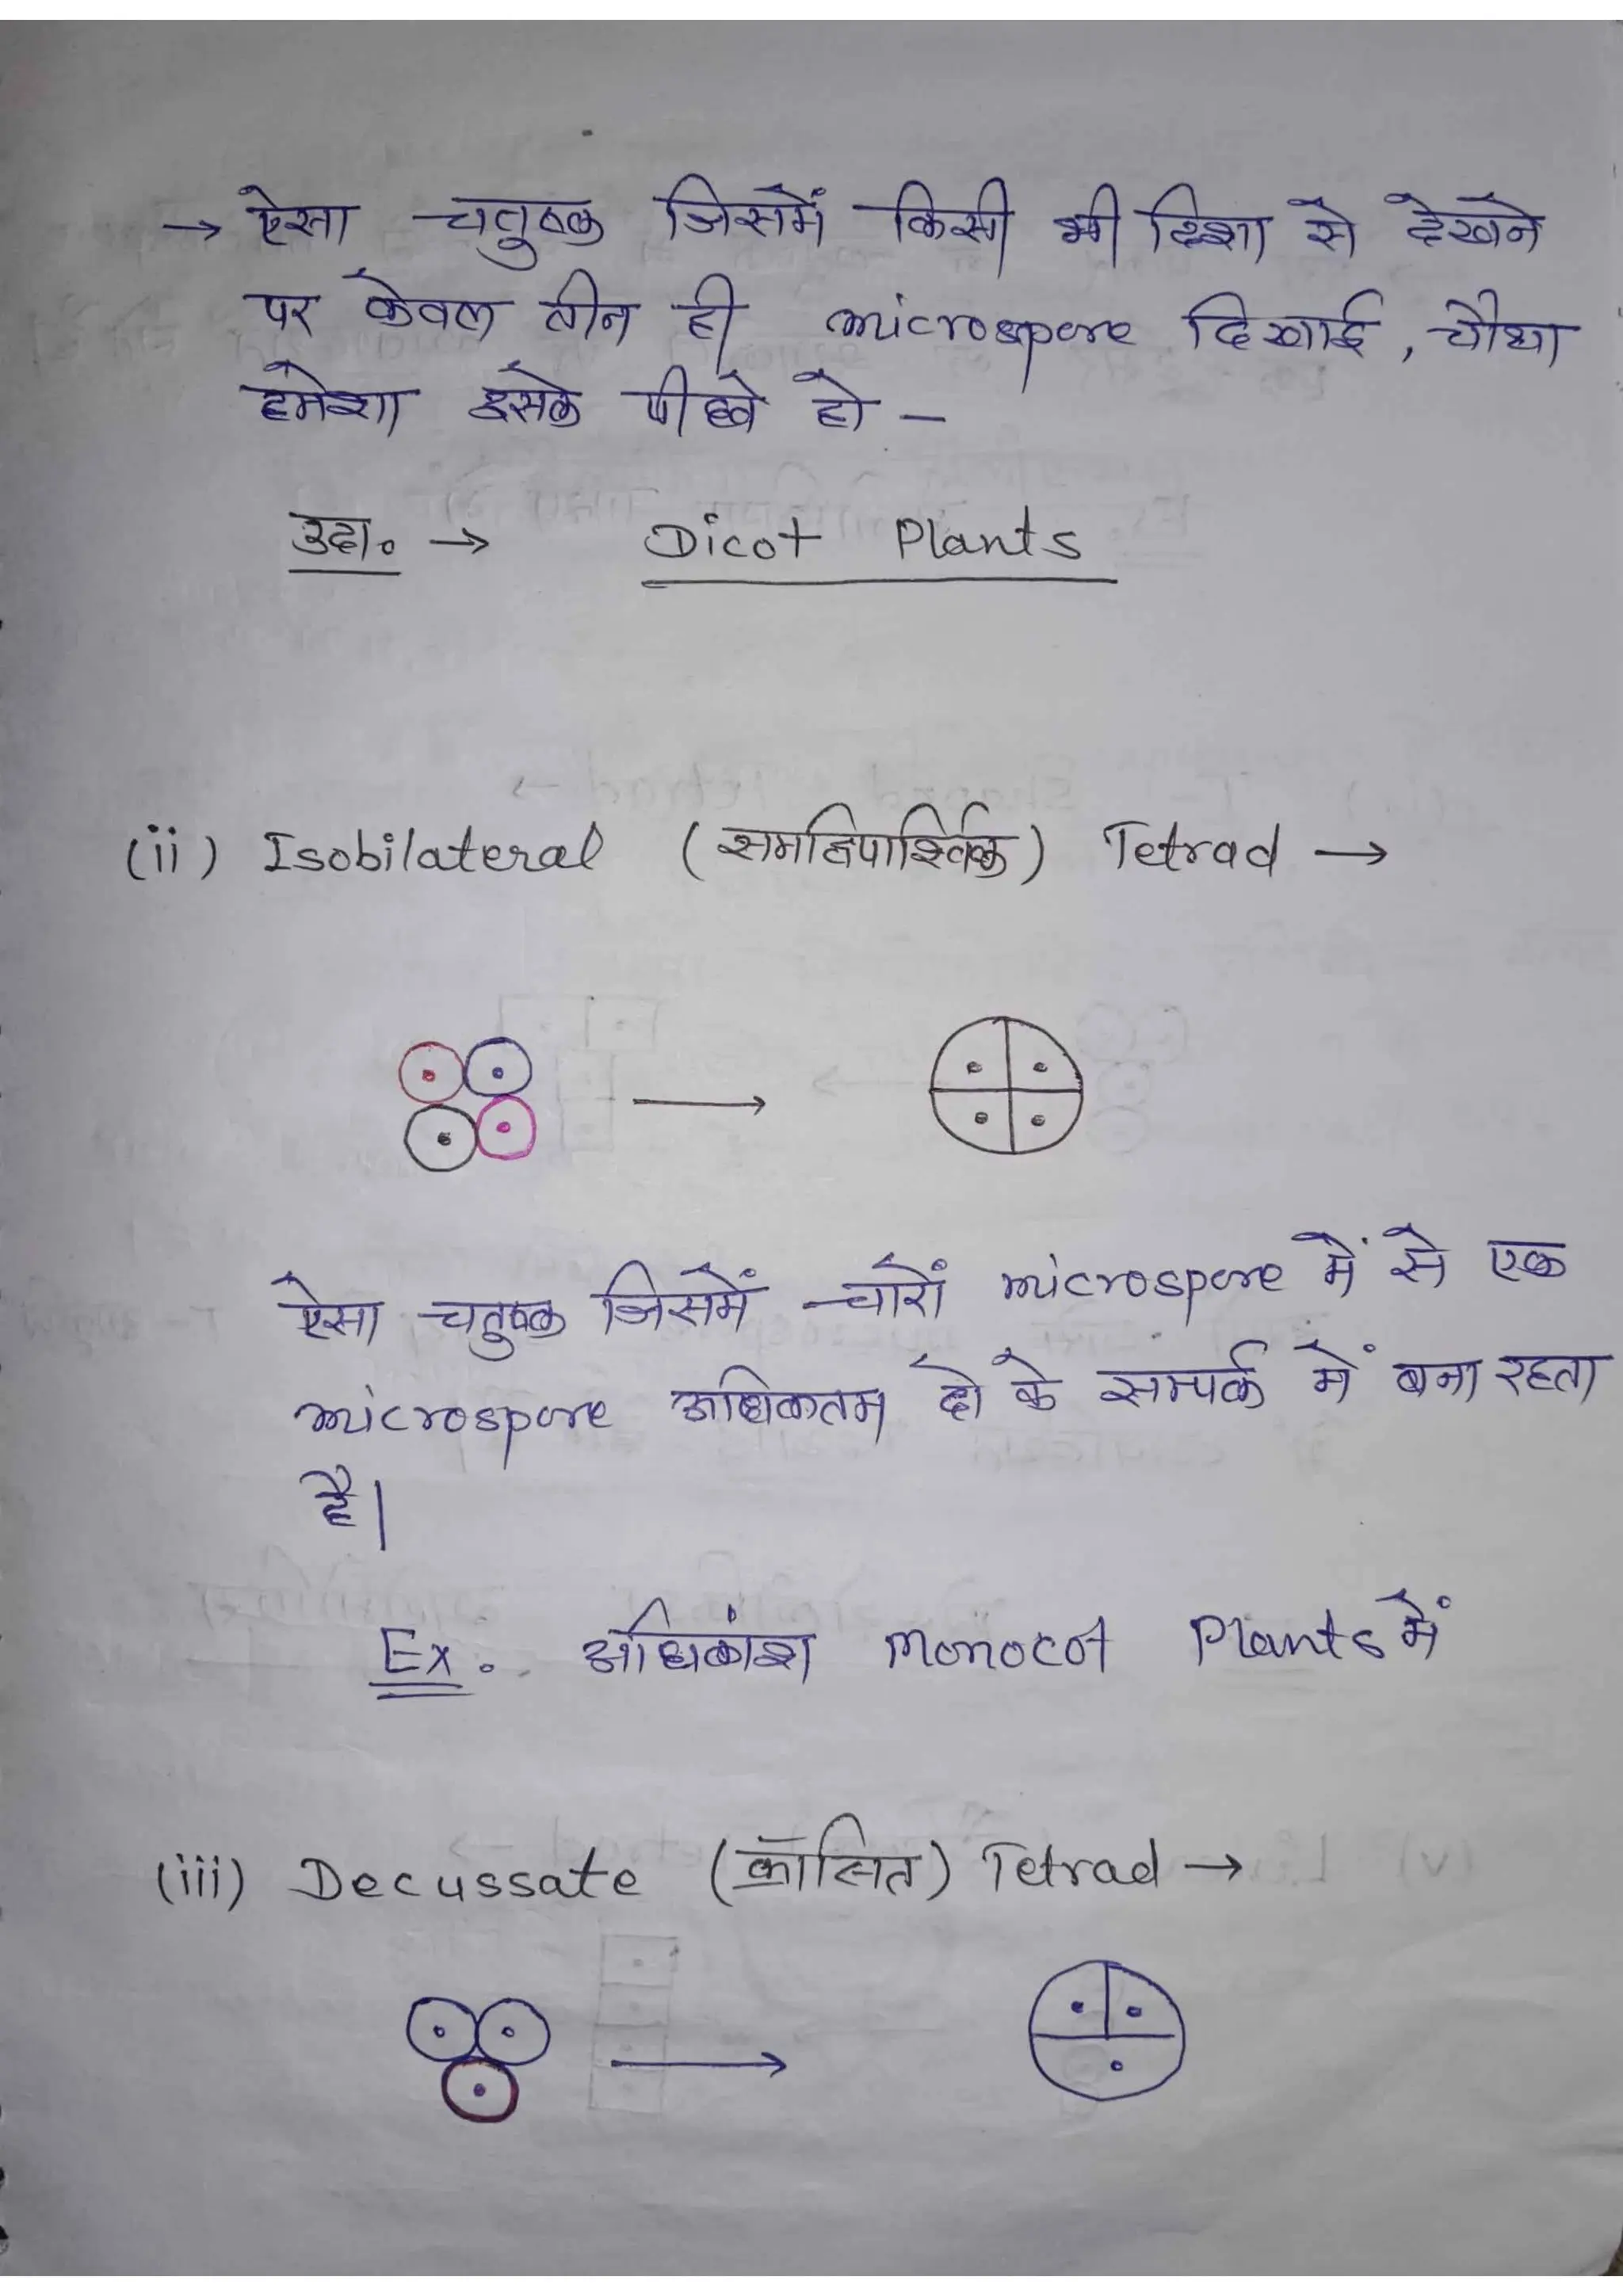 → ऐसा चतुष्क जिसमें किसी भी दिशा से देखने
पर केवल तीन ही microspore दिखाई, चौथा
हमेशा इसके पीछे हो –
उदा. → Dicot Plants
(ii) Isobilateral (समद्विपार्श्विक) Tetrad →
ऐसा चतुष्क जिसमें चारों microspore में से एक
microspore अधिकतम दो के सम्पर्क में बना रहता
है।
Ex. अधिकांश Monocot Plants में
(iii) Decussate (क्रॉसित) Tetrad →